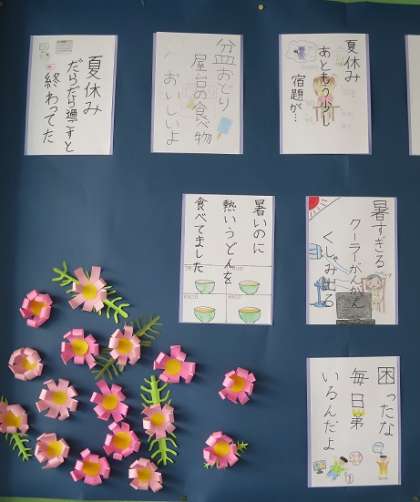 夏休み
あともう少し
宿題が…
盆おどり
屋台の食べ物
おいしいよ
夏休み
だらだら過ごすと
終わってた
暑すぎる
クーラーがんがん
くしゃみ出る
暑いのに
熱いうどんを
食べてました
困ったな
毎日弟
いるんだよ